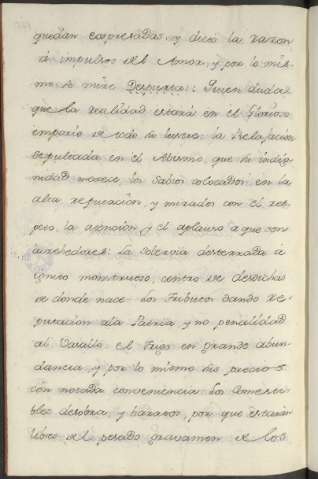 quedan expresadas, y dicta la razon
á impulsos del Amor, y por lo mis-
mo lo mire Despues: Quien duda
que la realidad estará en el Glorioso
emporio de todo su lustre: la Relajacion
sepultada en el Abismo, que su indig-
nidad merece, los Sabios colocados en la
alta reputacion, y mirados con el res-
peto, la atencion y el aplauso a que son
acrehedores: la Sobervia desterrada á
como monstruoso, centro de desdichas
de donde nace los tributos dando re-
putacion ala Patria, y no penalidad
al Vasallo el Trigo en grande abun-
dancia, y por lo mismo su precio
con notada conveniencia los Comesti-
bles de sobra, y baratos, por que estarán
libres del pesado gravamen de los